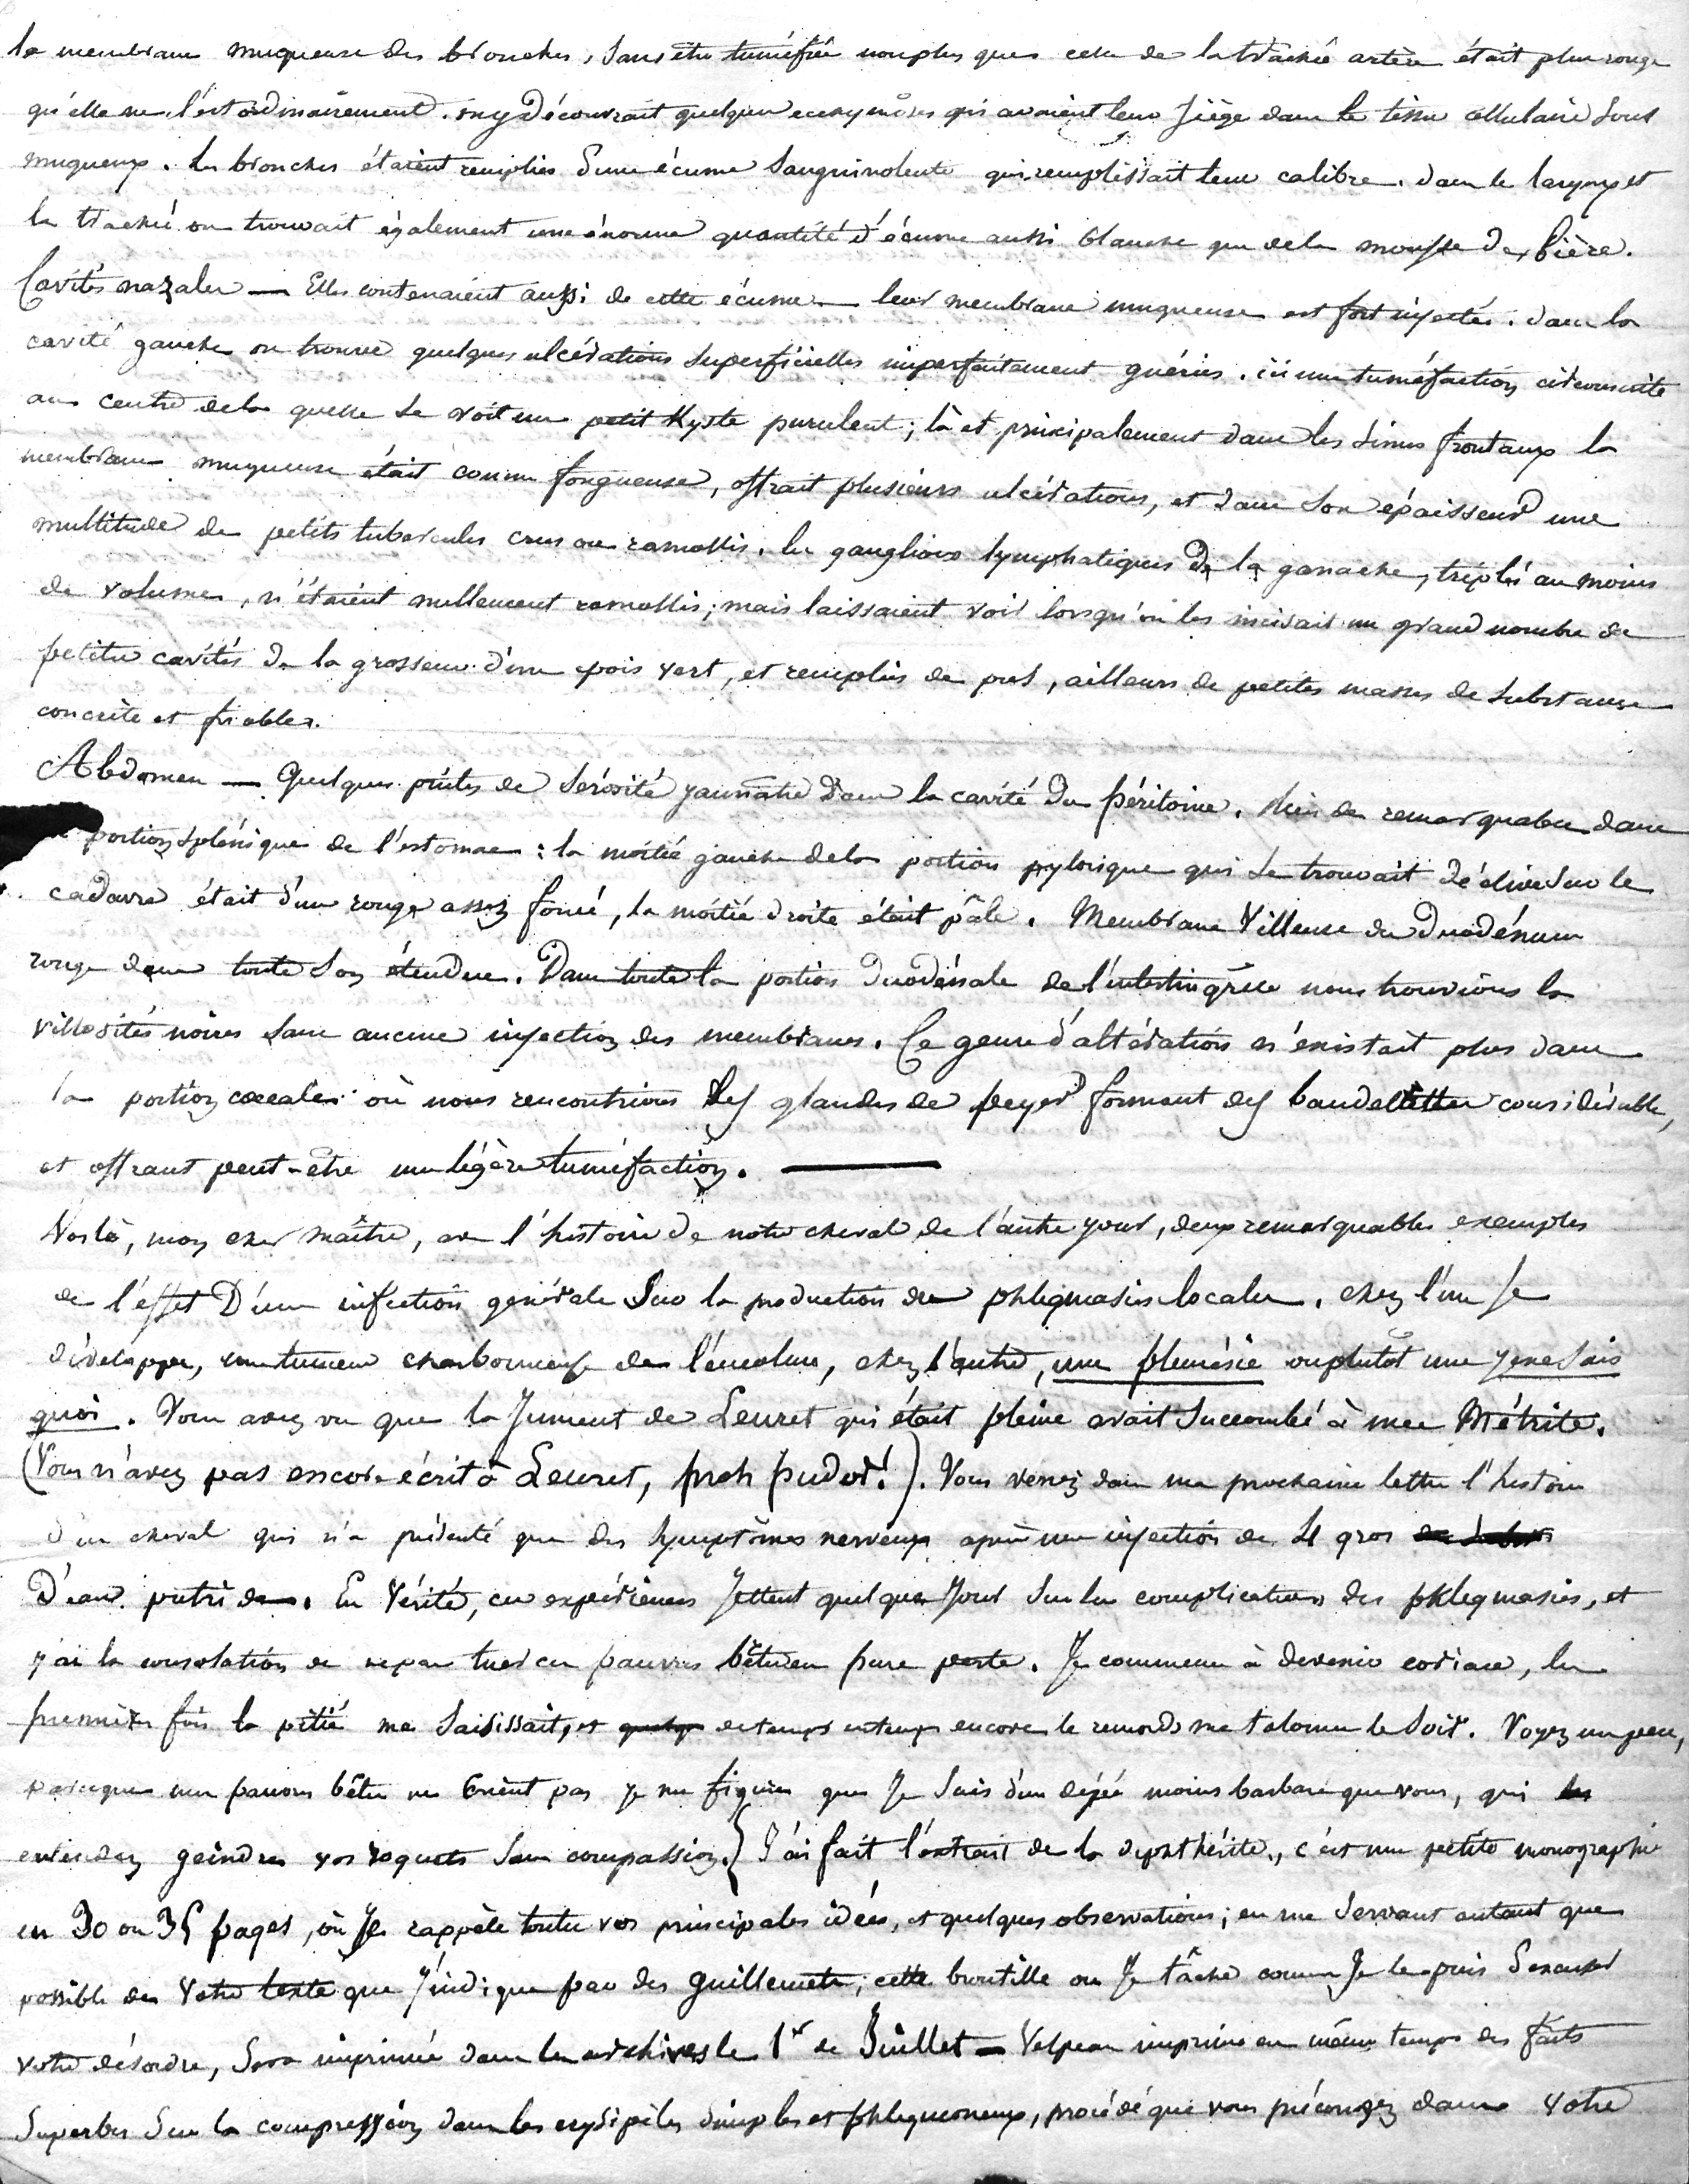 la membrane muqueuse des bronches, sans être tuméfiée non plus que celle de la trachée artère était plus rouge
qu'elle ne l'est ordinairement. on y découvrait quelques ecchymoses qui avaient leur siège dans le tissu cellulaire sous
muqueux. les bronches étaient remplies d'une écume sanguinolente qui remplissait leur calibre. dans le larynx et
la trachée on trouvait également une énorme quantité d'écume aussi blanche que de la mousse de bière.
Cavités nazales — Elles contenaient aussi de cette écume — leur membrane muqueuse est fort injectée. dans la
cavité gauche on trouve quelques ulcérations superficielles imparfaitement guéries. ici une tuméfaction circonscrite
au centre de la quelle se voit un petit Kyste purulent; là et principalement dans les sinus frontaux la
membrane muqueuse était comme fongueuse, offrait plusieurs ulcérations, et dans son épaisseur une
multitude de petits tubercules crus ou ramollis. les ganglions lymphatiques de la ganache, triplés au moins
de volume, n'étaient nullement ramollis; mais laissaient voir lorsqu'on les incisait un grand nombre de
petites cavités de la grosseur d'un pois vert, et remplies de pus, ailleurs de petites masses de substance
concrète et friable.
Abdomen — Quelques pintes de sérosité jaunâtre dans la cavité du péritoine. Rien de remarquable dans
portion splénique de l'estomac : la moitié gauche de la portion pylorique qui se trouvait déclive sur le
cadavre était d'un rouge assez foncé, la moitié droite était pâle. Membrane Villeuse du Duodénum
rouge dans toute son étendue. Dans toute la portion duodénale de l'intestin grêle nous trouvions les
villosités noires sans aucune injection des membranes. Ce genre d'altération n'existait plus dans
la portion cœcale où nous rencontrions les glandes de peyer formant des bandelettes considérables,
et offrant peut-être une légère tuméfaction. —
Voilà, mon cher maître, avec l'histoire de notre cheval de l'autre jour, deux remarquables exemples
de l'effet D'une infection générale sur la production de phlegmasies locales. chez l'un se
développe, une tumeur charbonneuse de l'encolure, chez l'autre, une pleurésie ou plutôt une je ne sais
quoi. Vous avez vu que la Jument de Leuret qui était pleine avait succombé à une Métrite.
(Vous n'avez pas encore écrit à Leuret, proh pudor!). Vous verrez dans ma prochaine lettre l'histoire
d'un cheval qui n'a présenté que des symptômes nerveux après une injection de 4 gros
D'eau putride. En Vérité, ces expériences jettent quelque jour sur les complications des phlegmasies, et
j'ai la consolation de ne pas tuer ces pauvres bêtes en pure perte. Je commence à devenir coriace, les
premières fois la pitié me saisissait, et de temps en temps encore le remords me talonne le soir. Voyez un peu,
parceque mes pauvres bêtes ne crient pas je me figure que Je suis d'un degré moins barbare que vous, qui
entendez geindre vos roquets sans compassion.} J'ai fait l'extrait de la diphthérite, c'est une petite monographie
en 30 ou 35 pages, où Je rappèle toutes vos principales idées, et quelques observations; en me servant autant que
possible de Votre texte que J'indique par des guillemets; cette broutille où Je tâche comme Je le puis d'excuser
votre désordre, sera imprimée dans les archives le 1er de Juillet — Velpeau imprime en même temps des faits
superbes sur la compression dans les erysipèles simples et phlegmoneux, procédé que vous préconisez dans votre